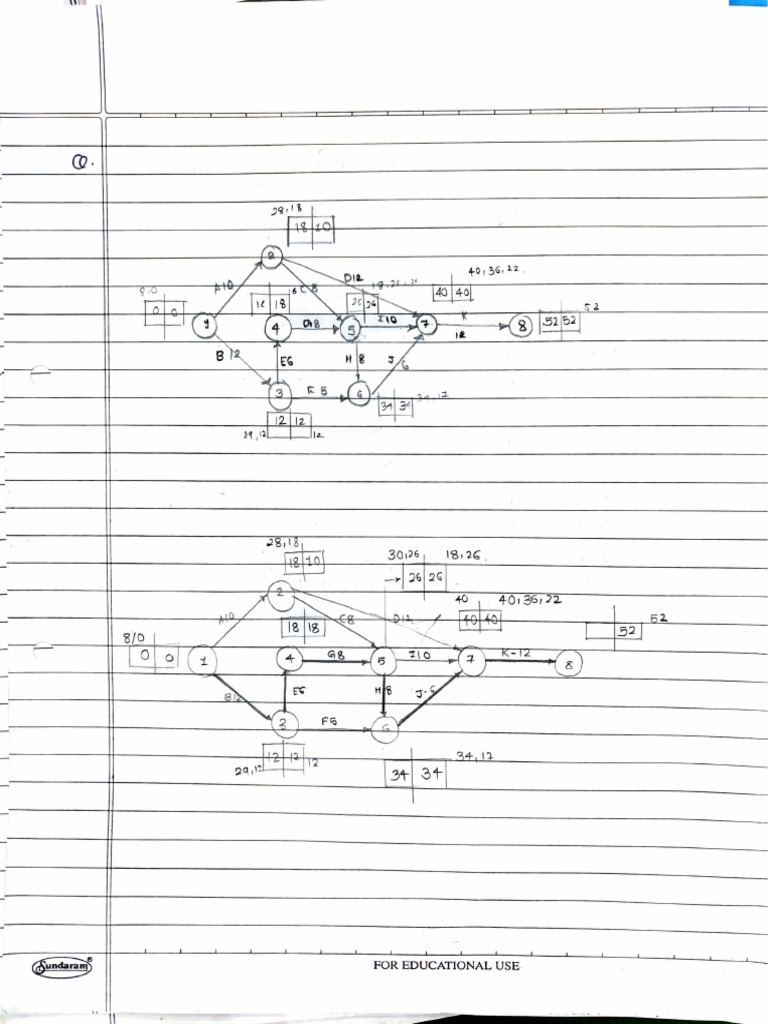 Q.
28,18
18 10
2
A10
C8
D12
40,36,22
8,0
0 0
18
26
40 40
52
1
4
G8
5
I10
7
K
12
8
52 52
B 12
E6
H 8
J 6
3
F 5
6
34 34
34,17
12 12
29,12
12
28,18
30,26
18,26
18 10
26 26
2
A10
C8
D12
40
40,36,22
18 18
40 40
52
52
8/0
0 0
1
4
G8
5
I10
7
K-12
8
B12
E6
H8
J-6
3
F5
6
12 12
29,12
12
34 34
34,17
Sundaram®
FOR EDUCATIONAL USE